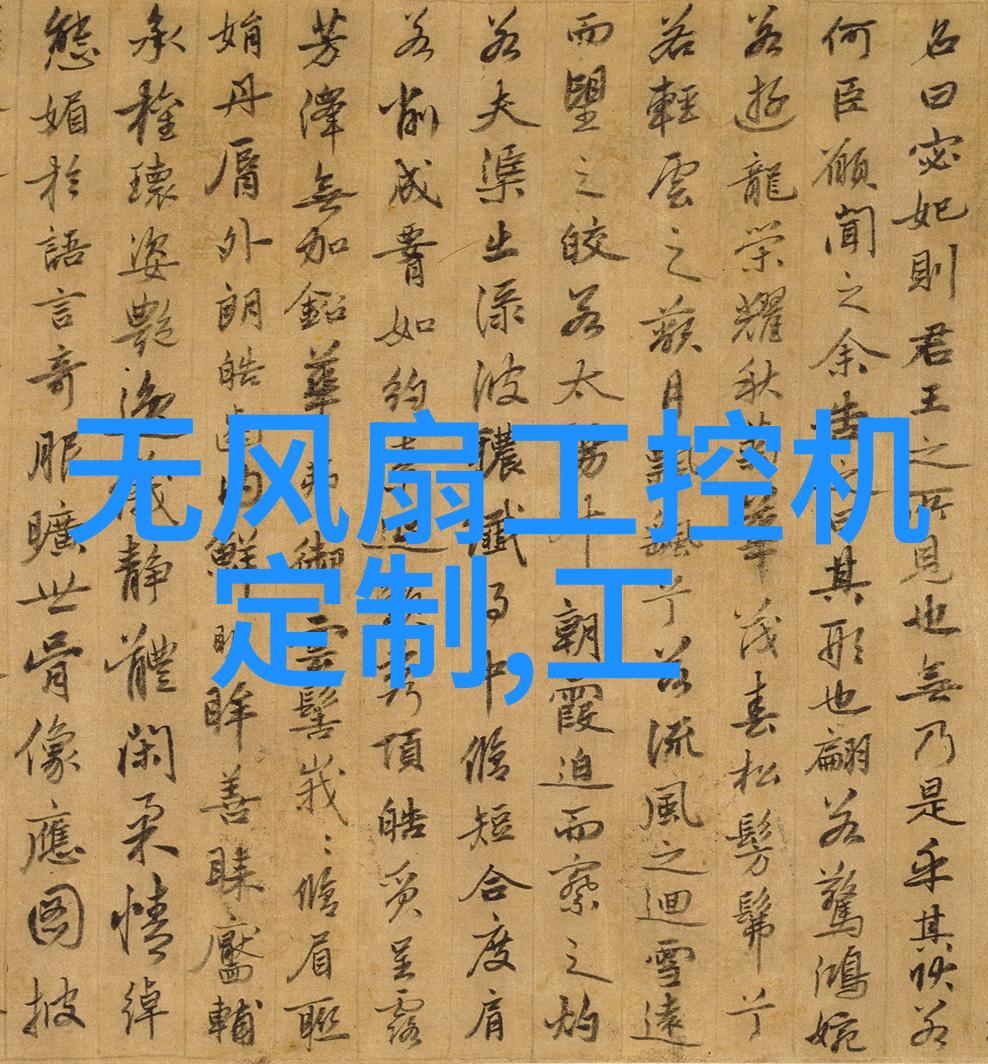 无风扇工控机
定制,工
名曰宓妃則君王之所見也無乃是乎其狀若
何臣願聞之余告之曰其形也翩若驚鴻婉
若遊龍榮耀秋菊華茂春松髣髴兮
若輕雲之蔽月飄颻兮若流風之迴雪遠
而望之皎若太陽升朝霞迫而察之灼
若夫渠出淥波穠纖得中脩短合度肩
若削成腰如約素延頸秀項皓質呈露
芳澤無加鉛華弗御雲髻峩〻脩眉聯
娟丹脣外朗皓齒內鮮明眸善睞靨輔
承權瓌姿艷逸儀靜體閑柔情綽
態媚於語言奇服曠世骨像應圖披